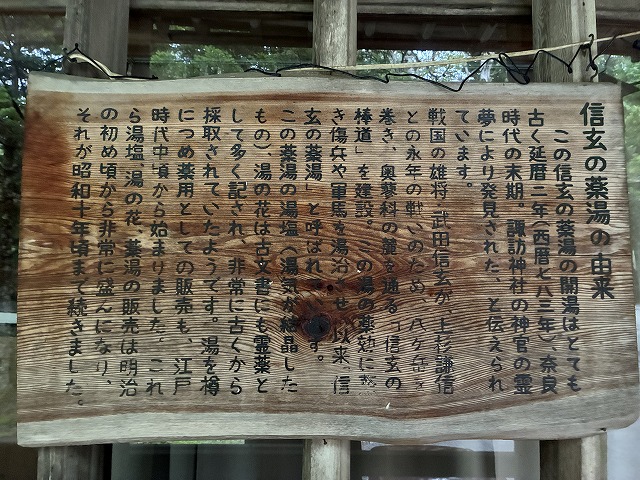 信玄の薬湯の由来
この信玄の薬湯の開湯はとても
古く延暦二年(西暦七八三年)奈良
時代の末期。諏訪神社の神官の霊
夢により発見された、と伝えられ
ています。
戦国の雄将、武田信玄が、上杉謙信
との永年の戦いのため、八ヶ岳を
巻き、奥蓼科の麓を通る「信玄の
棒道」を建設。この湯の薬効に
き傷兵や軍馬を湯治させ、以来、信
玄の薬湯」と呼ばれ す。
この薬湯の湯塩(湯気が結晶した
もの)、湯の花は古文書にも霊薬と
して多く記され、非常に古くから
採取されていたようです。湯を樽
につめ薬用としての販売も、江戸
時代中頃から始まりました。これ
ら湯塩、湯の花、薬湯の販売は明治
の初め頃から非常に盛んになり、
それが昭和十年頃まで続きました。